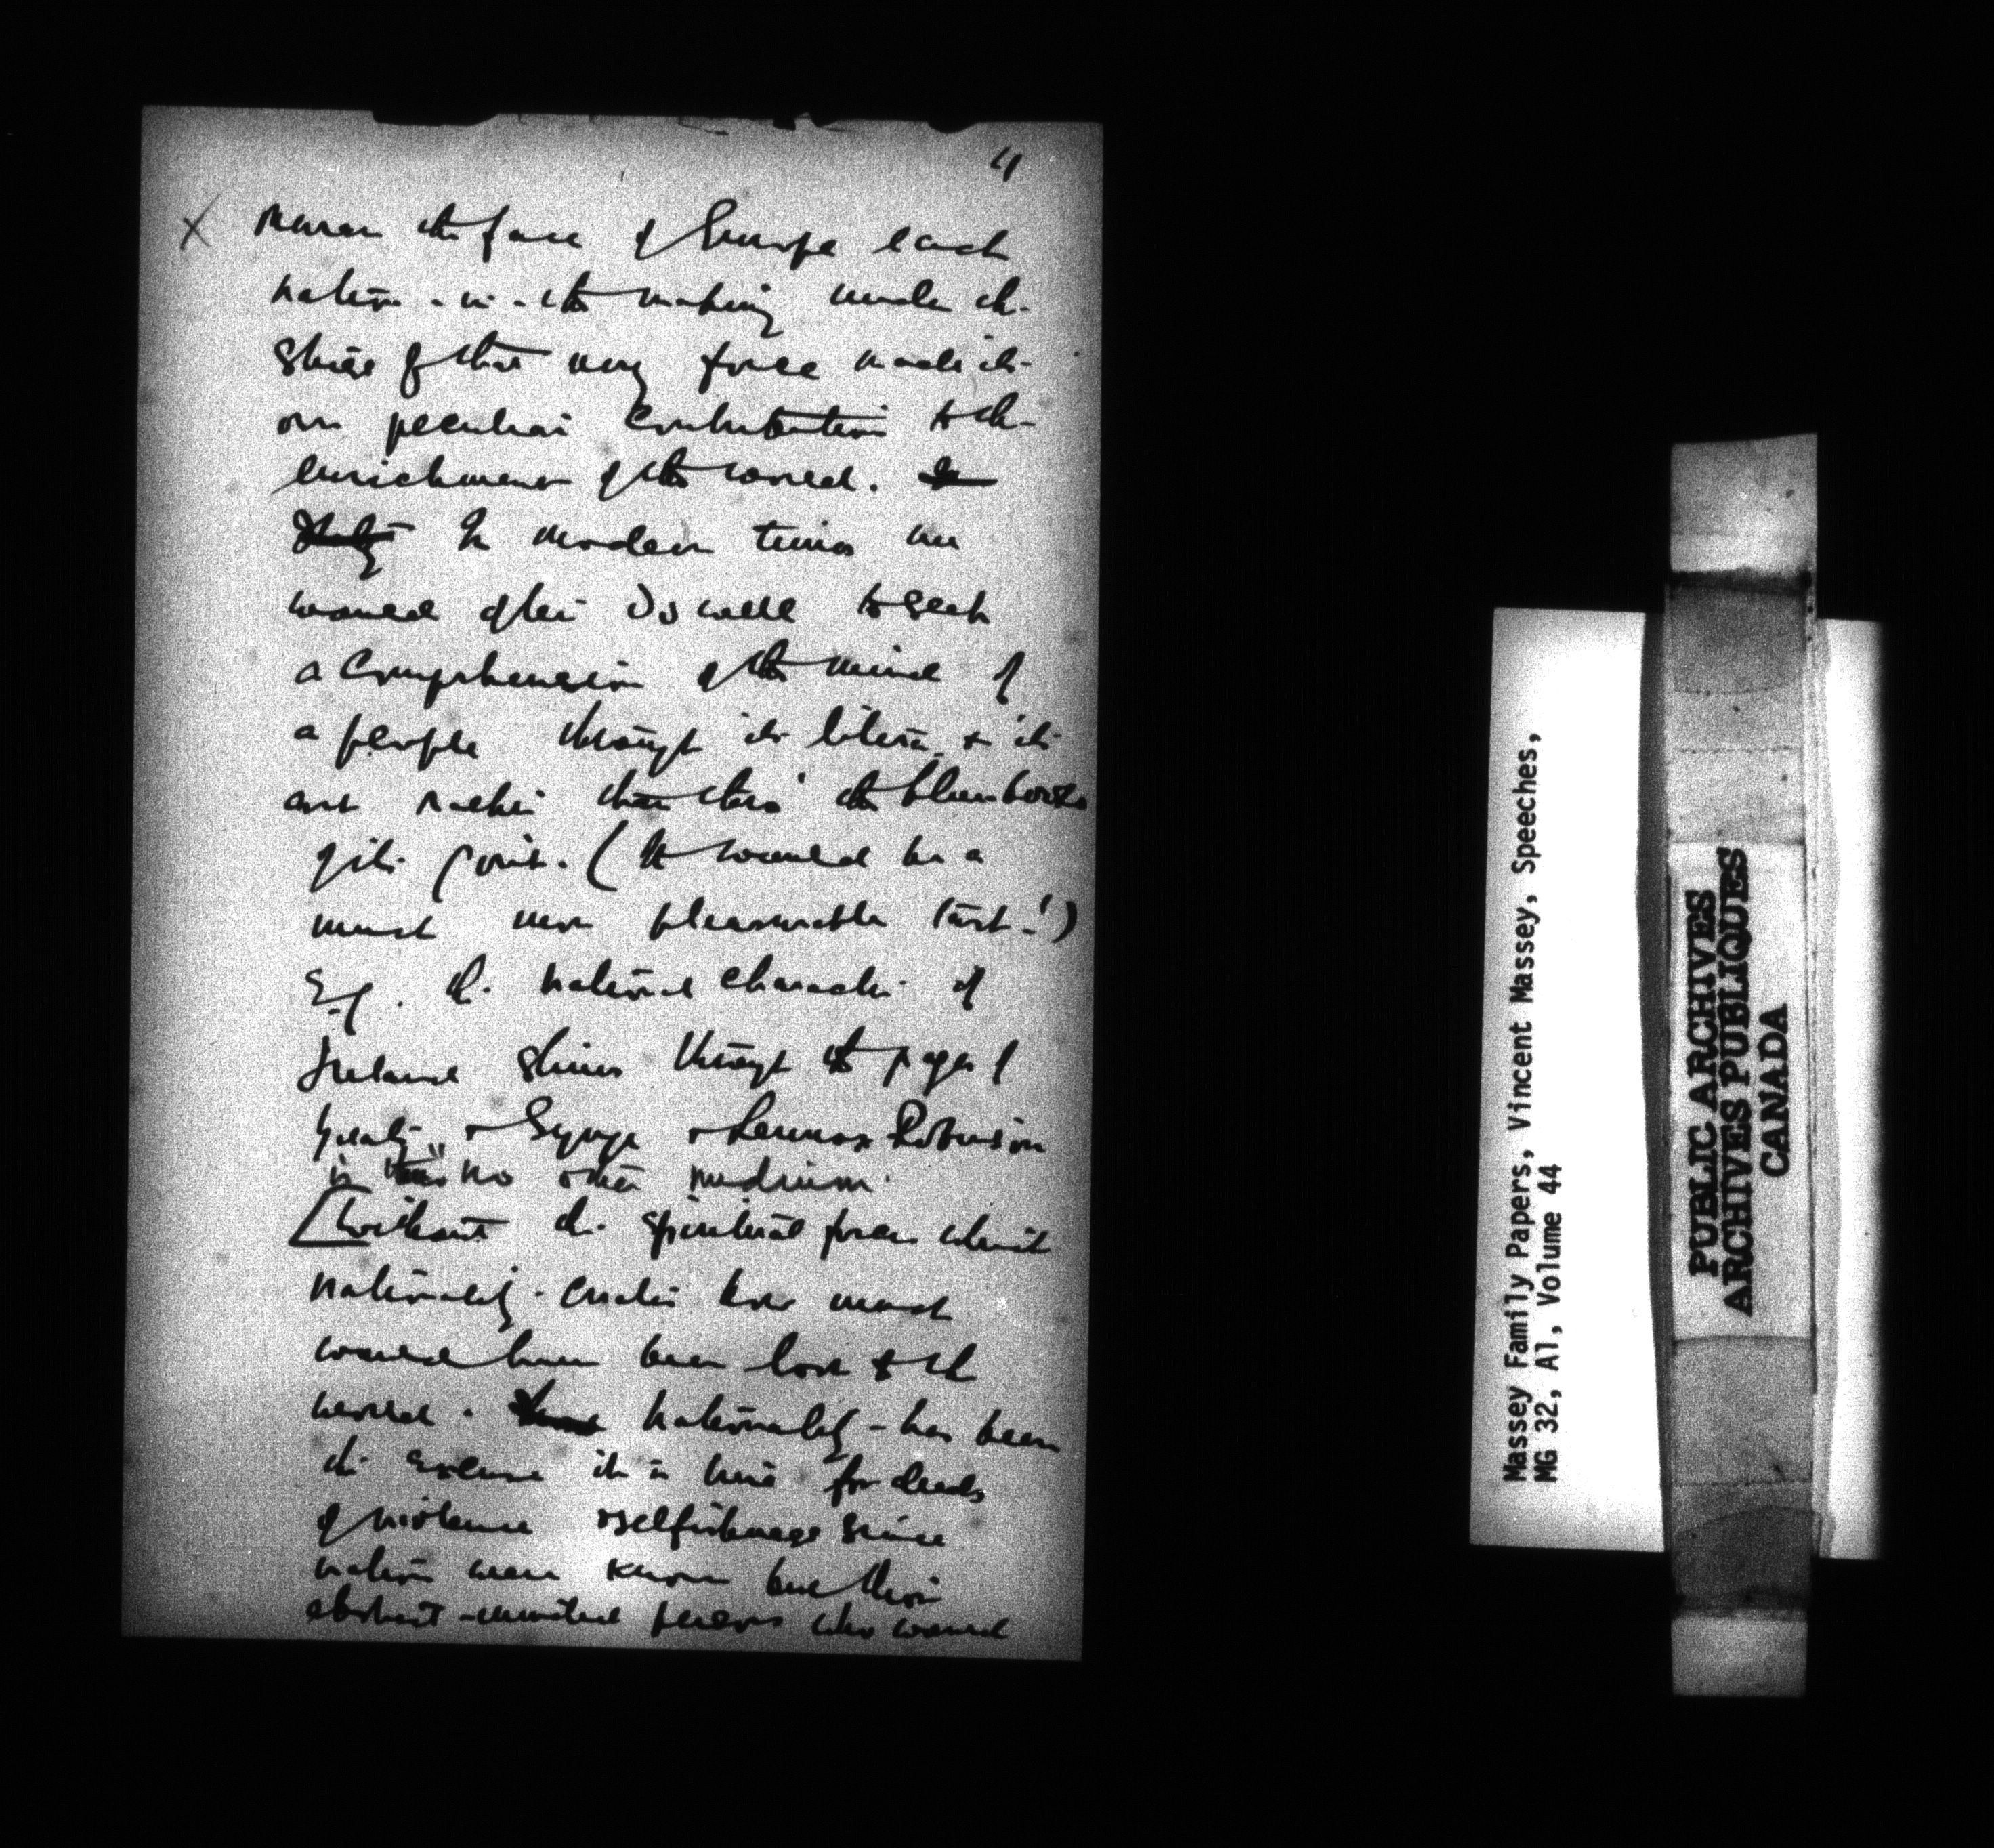 4
X
the face of Europe each
nation - in - the making under the
of that very force made its
own peculiar contribution to the
enrichment of the world.
In modern times we
would often do well to seek
a comprehension of the mind of
a people through its litera. & its
art rather than thro' the blue books
of its govt. (It would be a
much more pleasurable task!)
E.g. the national character of
Ireland shines through the pages of
Yeats & Synge & Lennox Robinson
in no other medium.
Without the spiritual force which
nationality creates how much
would have been lost to the
world. nationality - has been
the excuse it is true for deeds
of violence & selfishness since
nations were known but their
persons who would
Massey Family Papers, Vincent Massey, Speeches,
MG 32, A1, Volume 44
PUBLIC ARCHIVES
ARCHIVES PUBLIQUES
CANADA